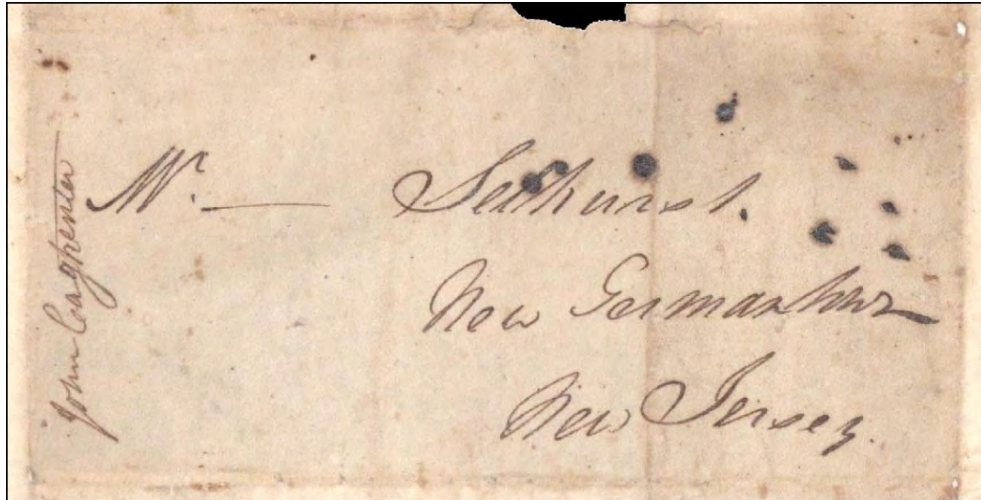 John Carpenter
Mr. —
New Germantown
New Jersey.